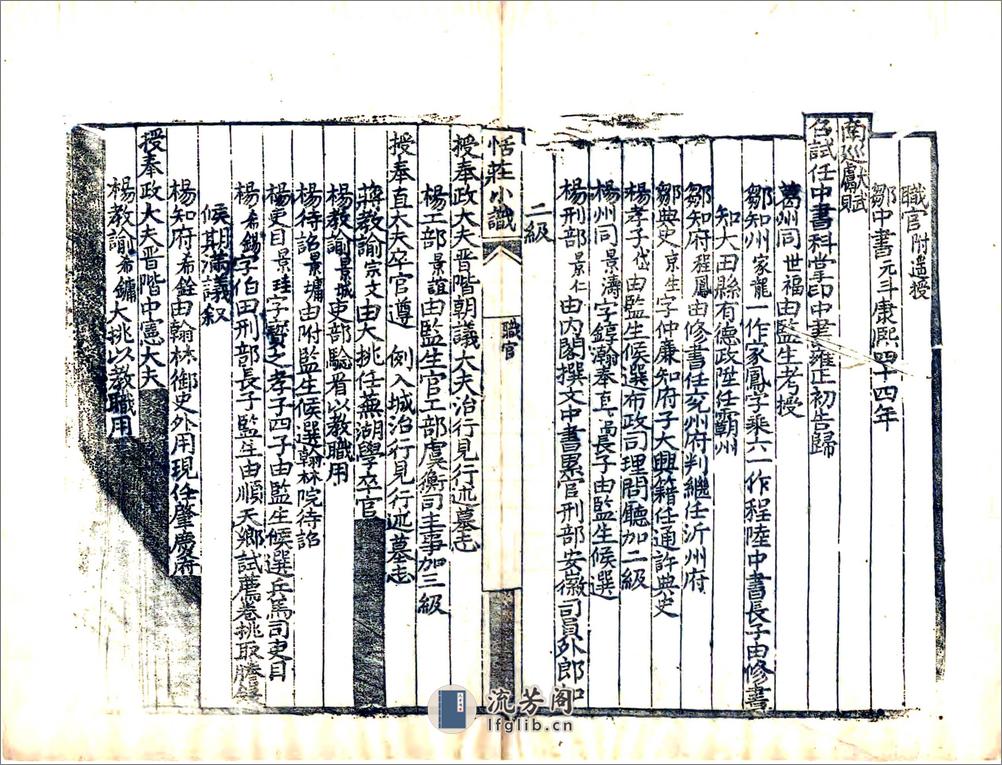 職官 附遺授
鄒中書元斗康熙四十四年
南巡獻賦
召試任中書科掌印中書雍正初告歸
葛州同世福由監生考授
鄒知州家龍一作家鳳字乘六一作程陸中書長子由修書
知大田縣有德政陞任霸州
鄒知府程鳳由修書任兗州府判繼任沂州府
鄒典史京生字仲廉知府子大興籍任通許典史
楊孝子岱由監生候選布政司理問聽加二級
楊州同景濤字錞瀚奉直長子由監生候選
楊刑部景仁由內閣撰文中書累官刑部安徽司員外郎加
二級
恬莊小識
職官
授奉政大夫晋階朝議大夫治行見行述墓志
楊工部景誼由監生官工部虞衡司主事加三級
授奉直大夫卒官遵 例入城治行見行述墓志
蔣教諭宗文由大挑任蕪湖學卒官
楊教諭景城吏部驗看以教職用
楊待詔景墉由附監生候選翰林院待詔
楊吏目景珪字寶之孝子四子由監生候選兵馬司吏目
楊希錫字伯田刑部長子監生由順天鄉試薦卷挑取謄錄
候期滿議叙
楊知府希銓由翰林御史外用現任肇慶府
授奉政大夫晋階中憲大夫
楊教諭希鏞大挑以教職用
流芳阁
lfglib.cn